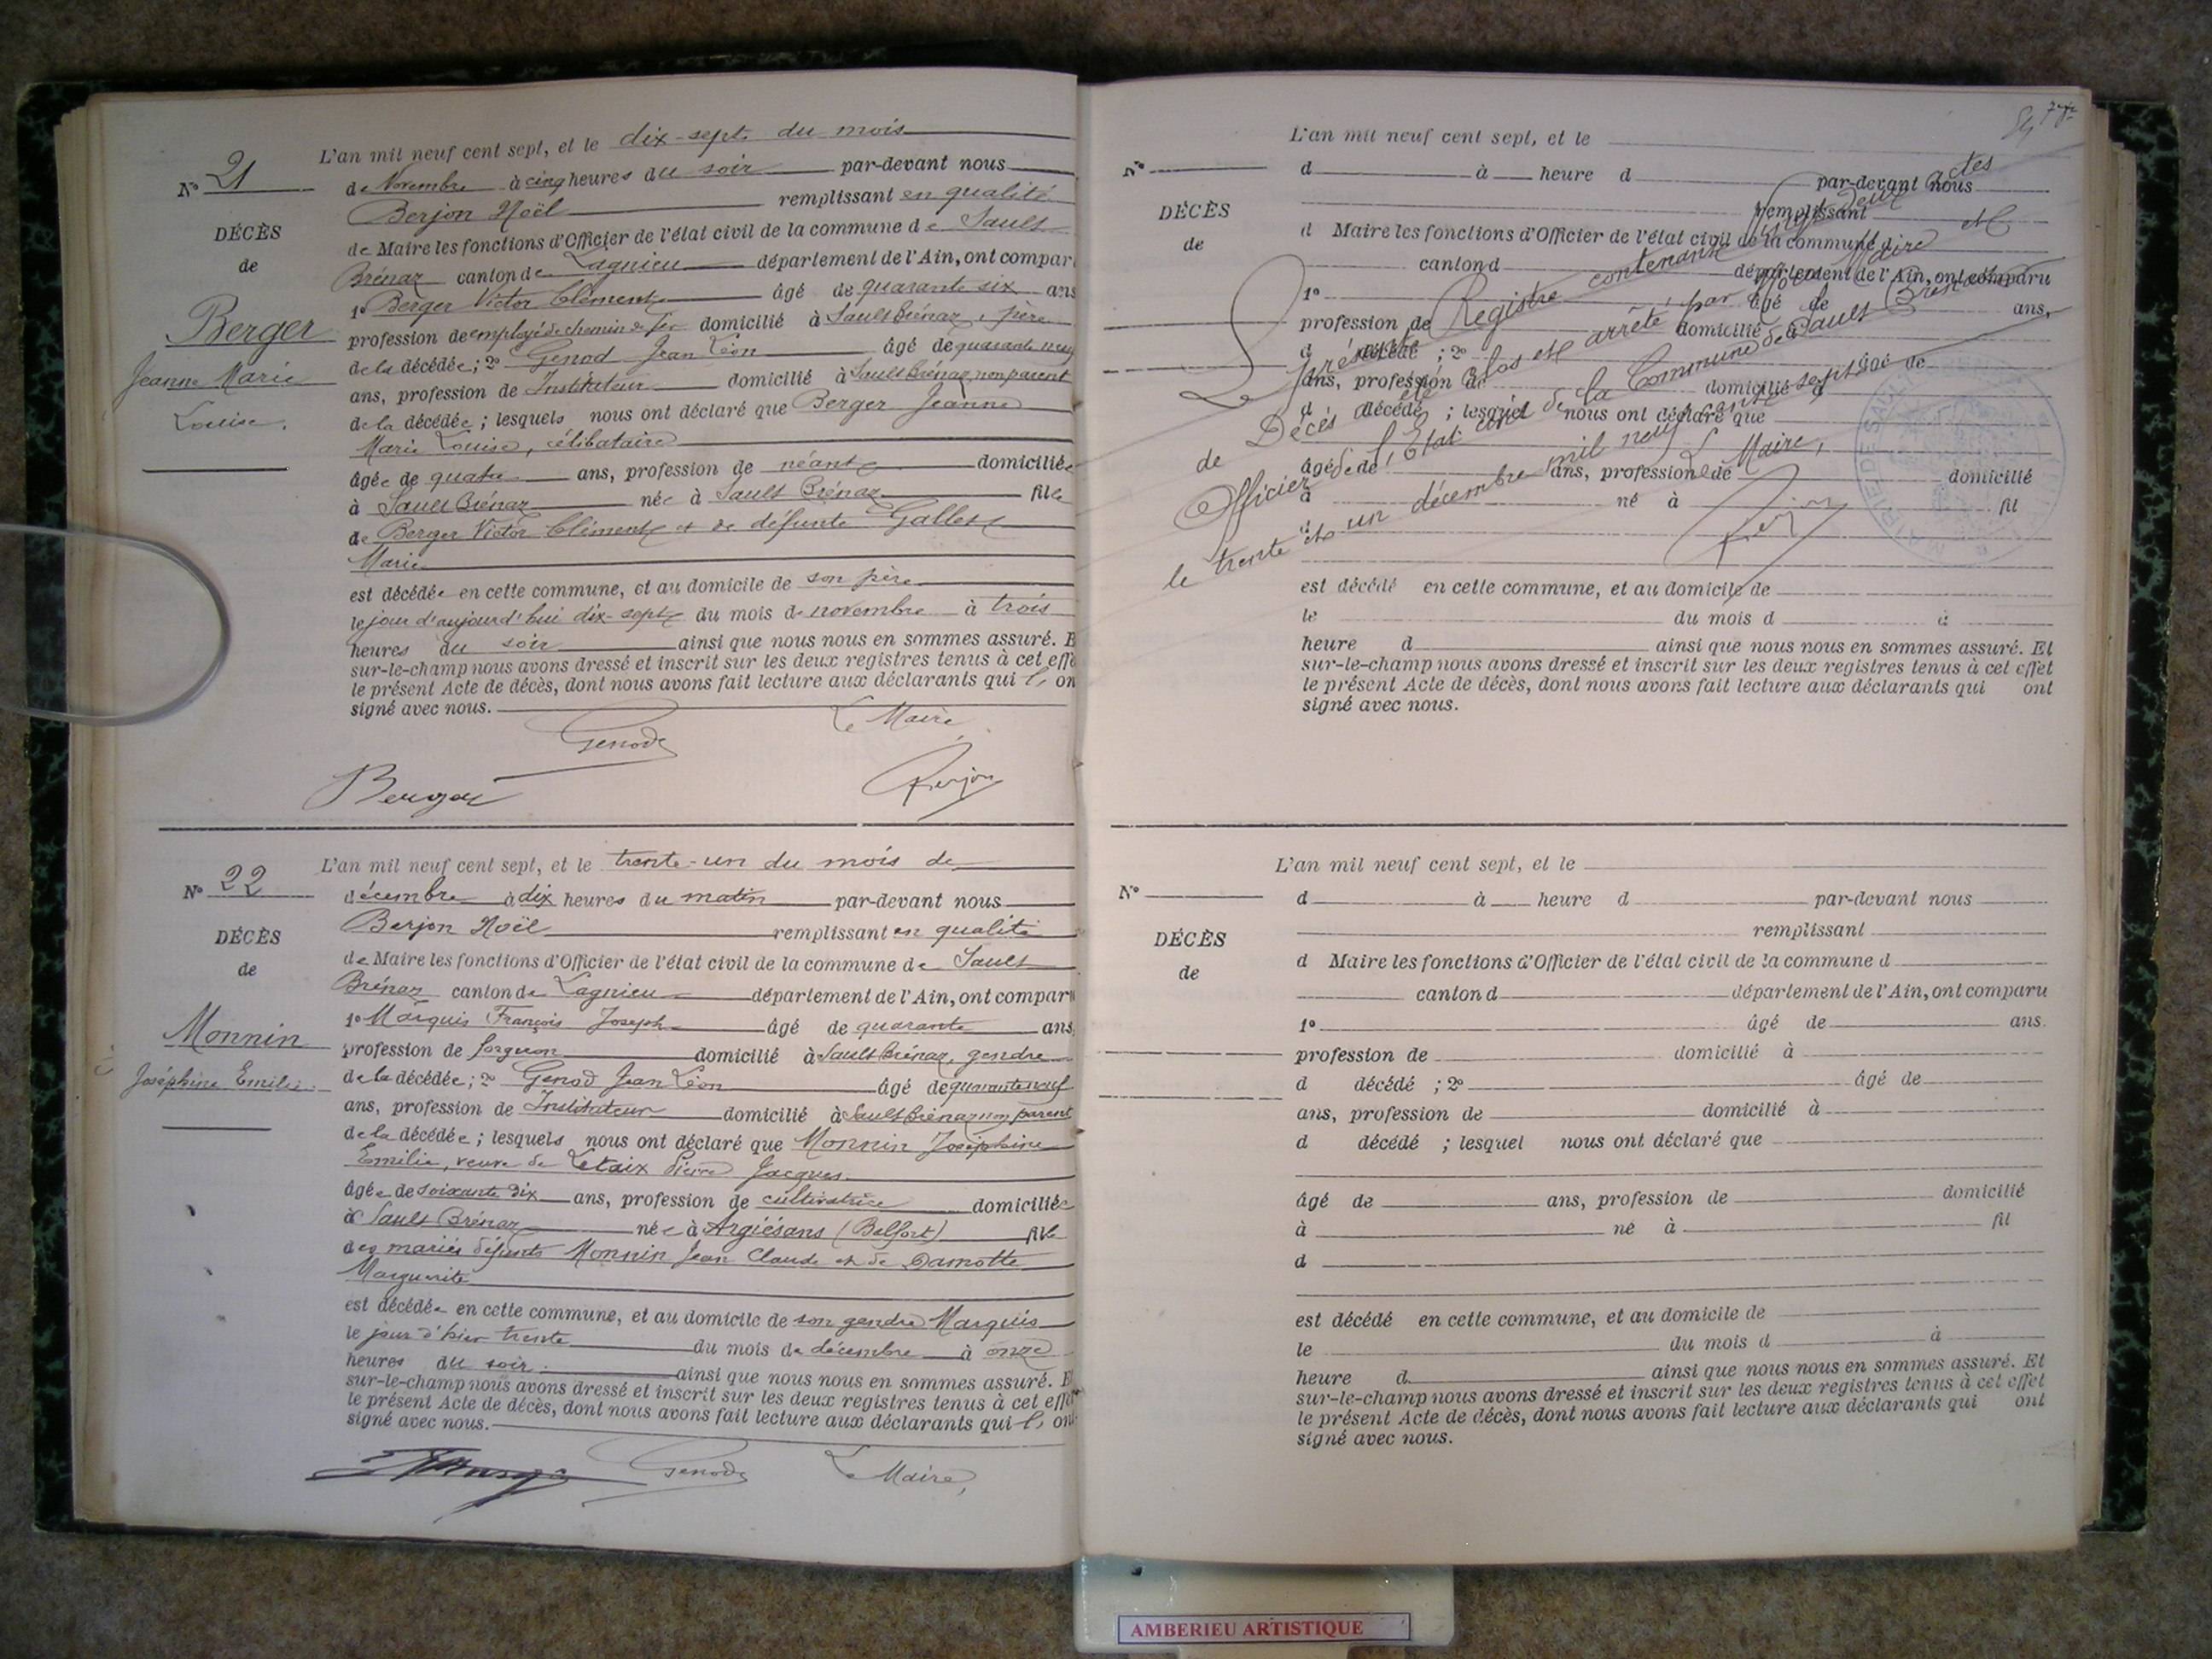 L'an mil neuf cent sept, et le dix-sept du mois
No 21
de Novembre à cinq heures du soir par-devant nous
Berjon Noël remplissant en qualité
DÉCÈS
de Maire les fonctions d'Officier de l'état civil de la commune de Sault
de
Brénaz canton de Lagnieu département de l'Ain, ont compar
1o Berger Victor Clément âgé de quarante six ans
Berger
profession de employé de chemin de fer domicilié à Sault Brénaz, père
de la décédée; 2o Genod Jean Léon âgé de quarante neuf
Jeanne Marie
ans, profession de Instituteur domicilié à Sault Brénaz, non parent
Louise.
de la décédée; lesquels nous ont déclaré que Berger Jeanne
Marie Louise, célibataire
âgée de quatre ans, profession de néant domiciliée
à Sault Brénaz née à Sault Brénaz fille
de Berger Victor Clément et de défunte Gallet
Marie
est décédée en cette commune, et au domicile de son père
le jour d'aujourd'hui dix-sept du mois de novembre à trois
heures du soir ainsi que nous nous en sommes assuré. E
sur-le-champ nous avons dressé et inscrit sur les deux registres tenus à cet effe
le présent Acte de décès, dont nous avons fait lecture aux déclarants qui l' on
signé avec nous.
Genod
Le Maire
Berger
Berjon
L'an mil neuf cent sept, et le trente-un du mois de
No 22
décembre à dix heures du matin par-devant nous
Berjon Noël remplissant en qualité
DÉCÈS
de Maire les fonctions d'Officier de l'état civil de la commune de Sault
de
Brénaz canton de Lagnieu département de l'Ain, ont compar
1o Marquis François Joseph âgé de quarante ans
Monnin
profession de forgeron domicilié à Sault Brénaz, gendre
Joséphine Emilie.
de la décédée; 2o Genod Jean Léon âgé de quarante neuf
ans, profession de Instituteur domicilié à Sault Brénaz non parent
de la décédée; lesquels nous ont déclaré que Monnin Joséphine
Emilie, veuve de Pierre Jacques
âgée de soixante dix ans, profession de cultivatrice domiciliée
à Sault Brénaz née à Argiésans (Belfort) fille
des mariés défunts Monnin Jean Claude et de Damotte
Marguerite
est décédée en cette commune, et au domicile de son gendre Marquis
le jour d'hier trente du mois de décembre à onze
heures du soir. ainsi que nous nous en sommes assuré. E
sur-le-champ nous avons dressé et inscrit sur les deux registres tenus à cet effet
le présent Acte de décès, dont nous avons fait lecture aux déclarants qui l' ont
signé avec nous.
Genod
Le Maire,
L'an mil neuf cent sept, et le
No
d à heure d par-devant nous
remplissant
DÉCÈS
d Maire les fonctions d'Officier de l'état civil de la commune d
de
canton d département de l'Ain, ont comparu
1o âgé de ans,
profession de domicilié à
d décédé ; 2o âgé de
ans, profession de domicilié à
d décédé ; lesquel nous ont déclaré que
âgé de ans, profession de domicilié
à né à fil
d
est décédé en cette commune, et au domicile de
le du mois d à
heure d ainsi que nous nous en sommes assuré. Et
sur-le-champ nous avons dressé et inscrit sur les deux registres tenus à cet effet
le présent Acte de décès, dont nous avons fait lecture aux déclarants qui ont
signé avec nous.
Le présent Registre contenant vingt deux actes
de Décès a été clos et arrêté par nous Maire et
Officier de l'Etat civil de la Commune de Sault Brénaz
le trente et un décembre mil neuf cent sept
Le Maire,
Berjon
MAIRIE DE SAULT
L'an mil neuf cent sept, et le
No
d à heure d par-devant nous
remplissant
DÉCÈS
d Maire les fonctions d'Officier de l'état civil de la commune d
de
canton d département de l'Ain, ont comparu
1o âgé de ans.
profession de domicilié à
d décédé ; 2o âgé de
ans, profession de domicilié à
d décédé ; lesquel nous ont déclaré que
âgé de ans, profession de domicilié
à né à fil
d
est décédé en cette commune, et au domicile de
le du mois d à
heure d ainsi que nous nous en sommes assuré. Et
sur-le-champ nous avons dressé et inscrit sur les deux registres tenus à cet effet
le présent Acte de décès, dont nous avons fait lecture aux déclarants qui ont
signé avec nous.
AMBERIEU ARTISTIQUE